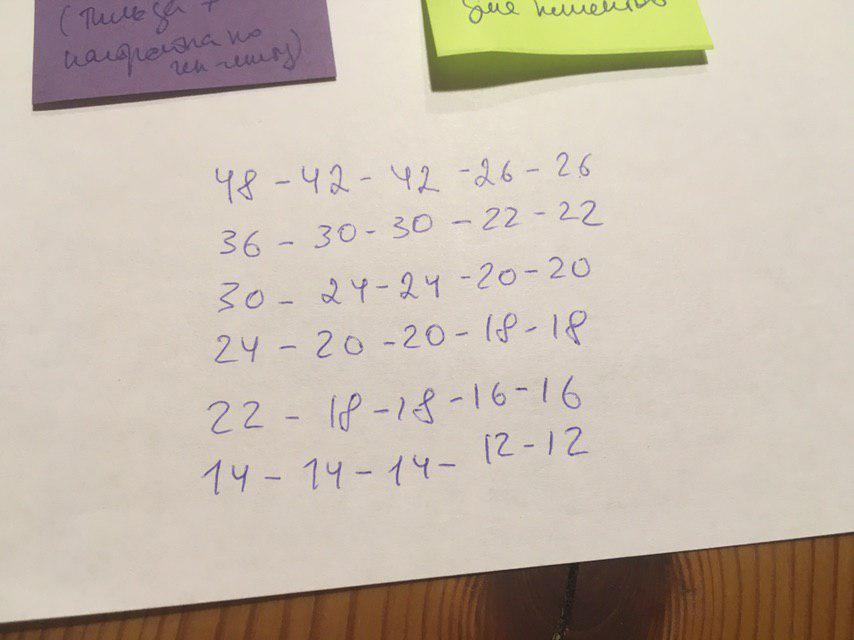 (Тильда +
настройка по
48 - 42 - 42 - 26 - 26
36 - 30 - 30 - 22 - 22
30 - 24 - 24 - 20 - 20
24 - 20 - 20 - 18 - 18
22 - 18 - 18 - 16 - 16
14 - 14 - 14 - 12 - 12